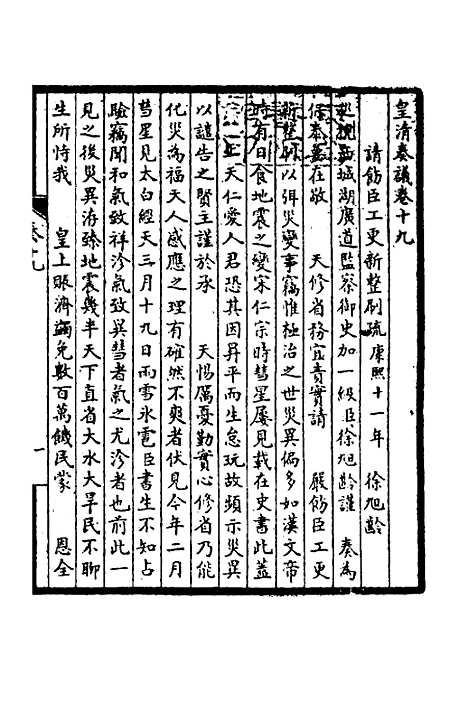 皇清奏議卷十九
請飭臣工更新整刷疏 康熙十一年 徐旭齡
巡視西城湖廣道監察御史加一級臣徐旭齡謹 奏為
修奉在敬 天修省務宜責實請 嚴飭臣工更
新整刷以弭災變事竊惟極治之世災異偏多如漢文帝
時有日食地震之變宋仁宗時彗星屢見載在史書此蓋
上天仁愛人君恐其因昇平而生怠玩故頻示災異
以譴告之賢主謹於承 天惕厲憂勤實心修省乃能
化災為福天人感應之理有確然不爽者伏見今年二月
彗星見太白經天三月十九日雨雪氷雹臣書生不知占
驗竊聞和氣致祥沴氣致異彗者氣之尤沴者也前此一
見之後災異洊臻地震幾半天下直省大水大旱民不聊
生所恃我 皇上賑濟蠲免數百萬饑民蒙 恩全
卷十九
一